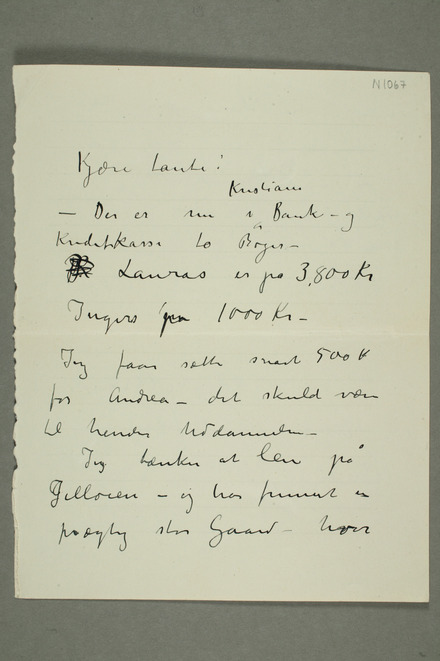 N1067
Kjære Tante!
Kristiania
– Der er nu i Bank- og
Kreditkasse to Bøger –
Lauras er på 3,800 Kr
Ingers på 1000 Kr –
Jeg faar sætte snart 500 K
for Andrea – det skuld være
til hendes Uddannelse –
Jeg tænker at leie på
Jelløien – og har funnet en
prægtig stor Gaard – hvor